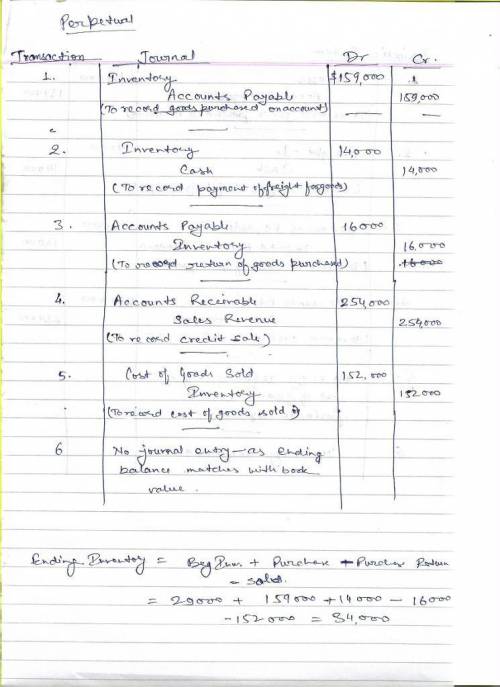 Perpetual
Transaction Journal Dr Cr.
1. Inventory $159,000
Accounts Payable 159,000
(To record goods purchased on account)
2. Inventory 14,000
Cash 14,000
(To record payment of freight for goods)
3. Accounts Payable 16000
Inventory 16,000
(To record return of goods purchased) 16000
4. Accounts Receivable 254,000
Sales Revenue 254,000
(To record credit sale)
5. Cost of Goods Sold 152,000
Inventory 152000
(To record cost of goods sold)
6 No journal entry - as ending
balance matches with book
value.
Ending Inventory = Beg Inv. + Purchase - Purchase Return
- sold.
= 29000 + 159000 + 14000 - 16000
- 152000 = 34,000